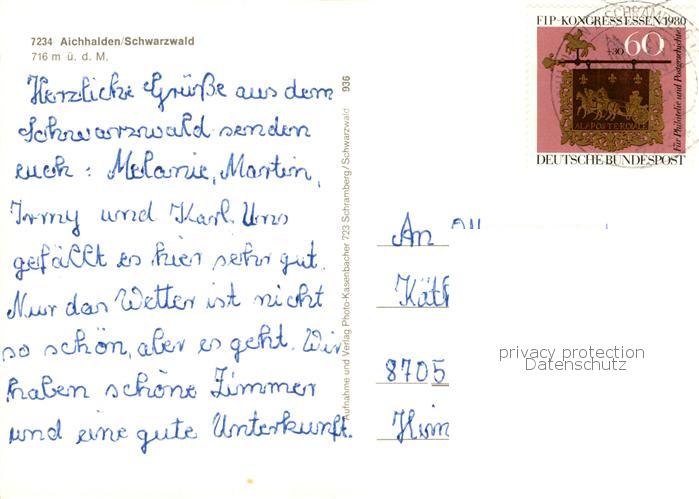 7234 Aichhalden/Schwarzwald
716 m ü. d. M.
Herzliche Grüße aus dem
Schwarzwald senden
euch: Melanie, Martin,
Irmy und Karl. Uns
gefällt es hier sehr gut.
Nur das Wetter ist nicht
so schön, aber es geht. Wir
haben schöne Zimmer
und eine gute Unterkunft.
936
Aufnahme und Verlag Photo-Kasenbacher 723 Schramberg/Schwarzwald
FIP-KONGRESS ESSEN 1980
+30 60
Für Philatelie und Postgeschichte
ALAPOSTEROYALE
DEUTSCHE BUNDESPOST
An
Käth
8705
privacy protection
Datenschutz